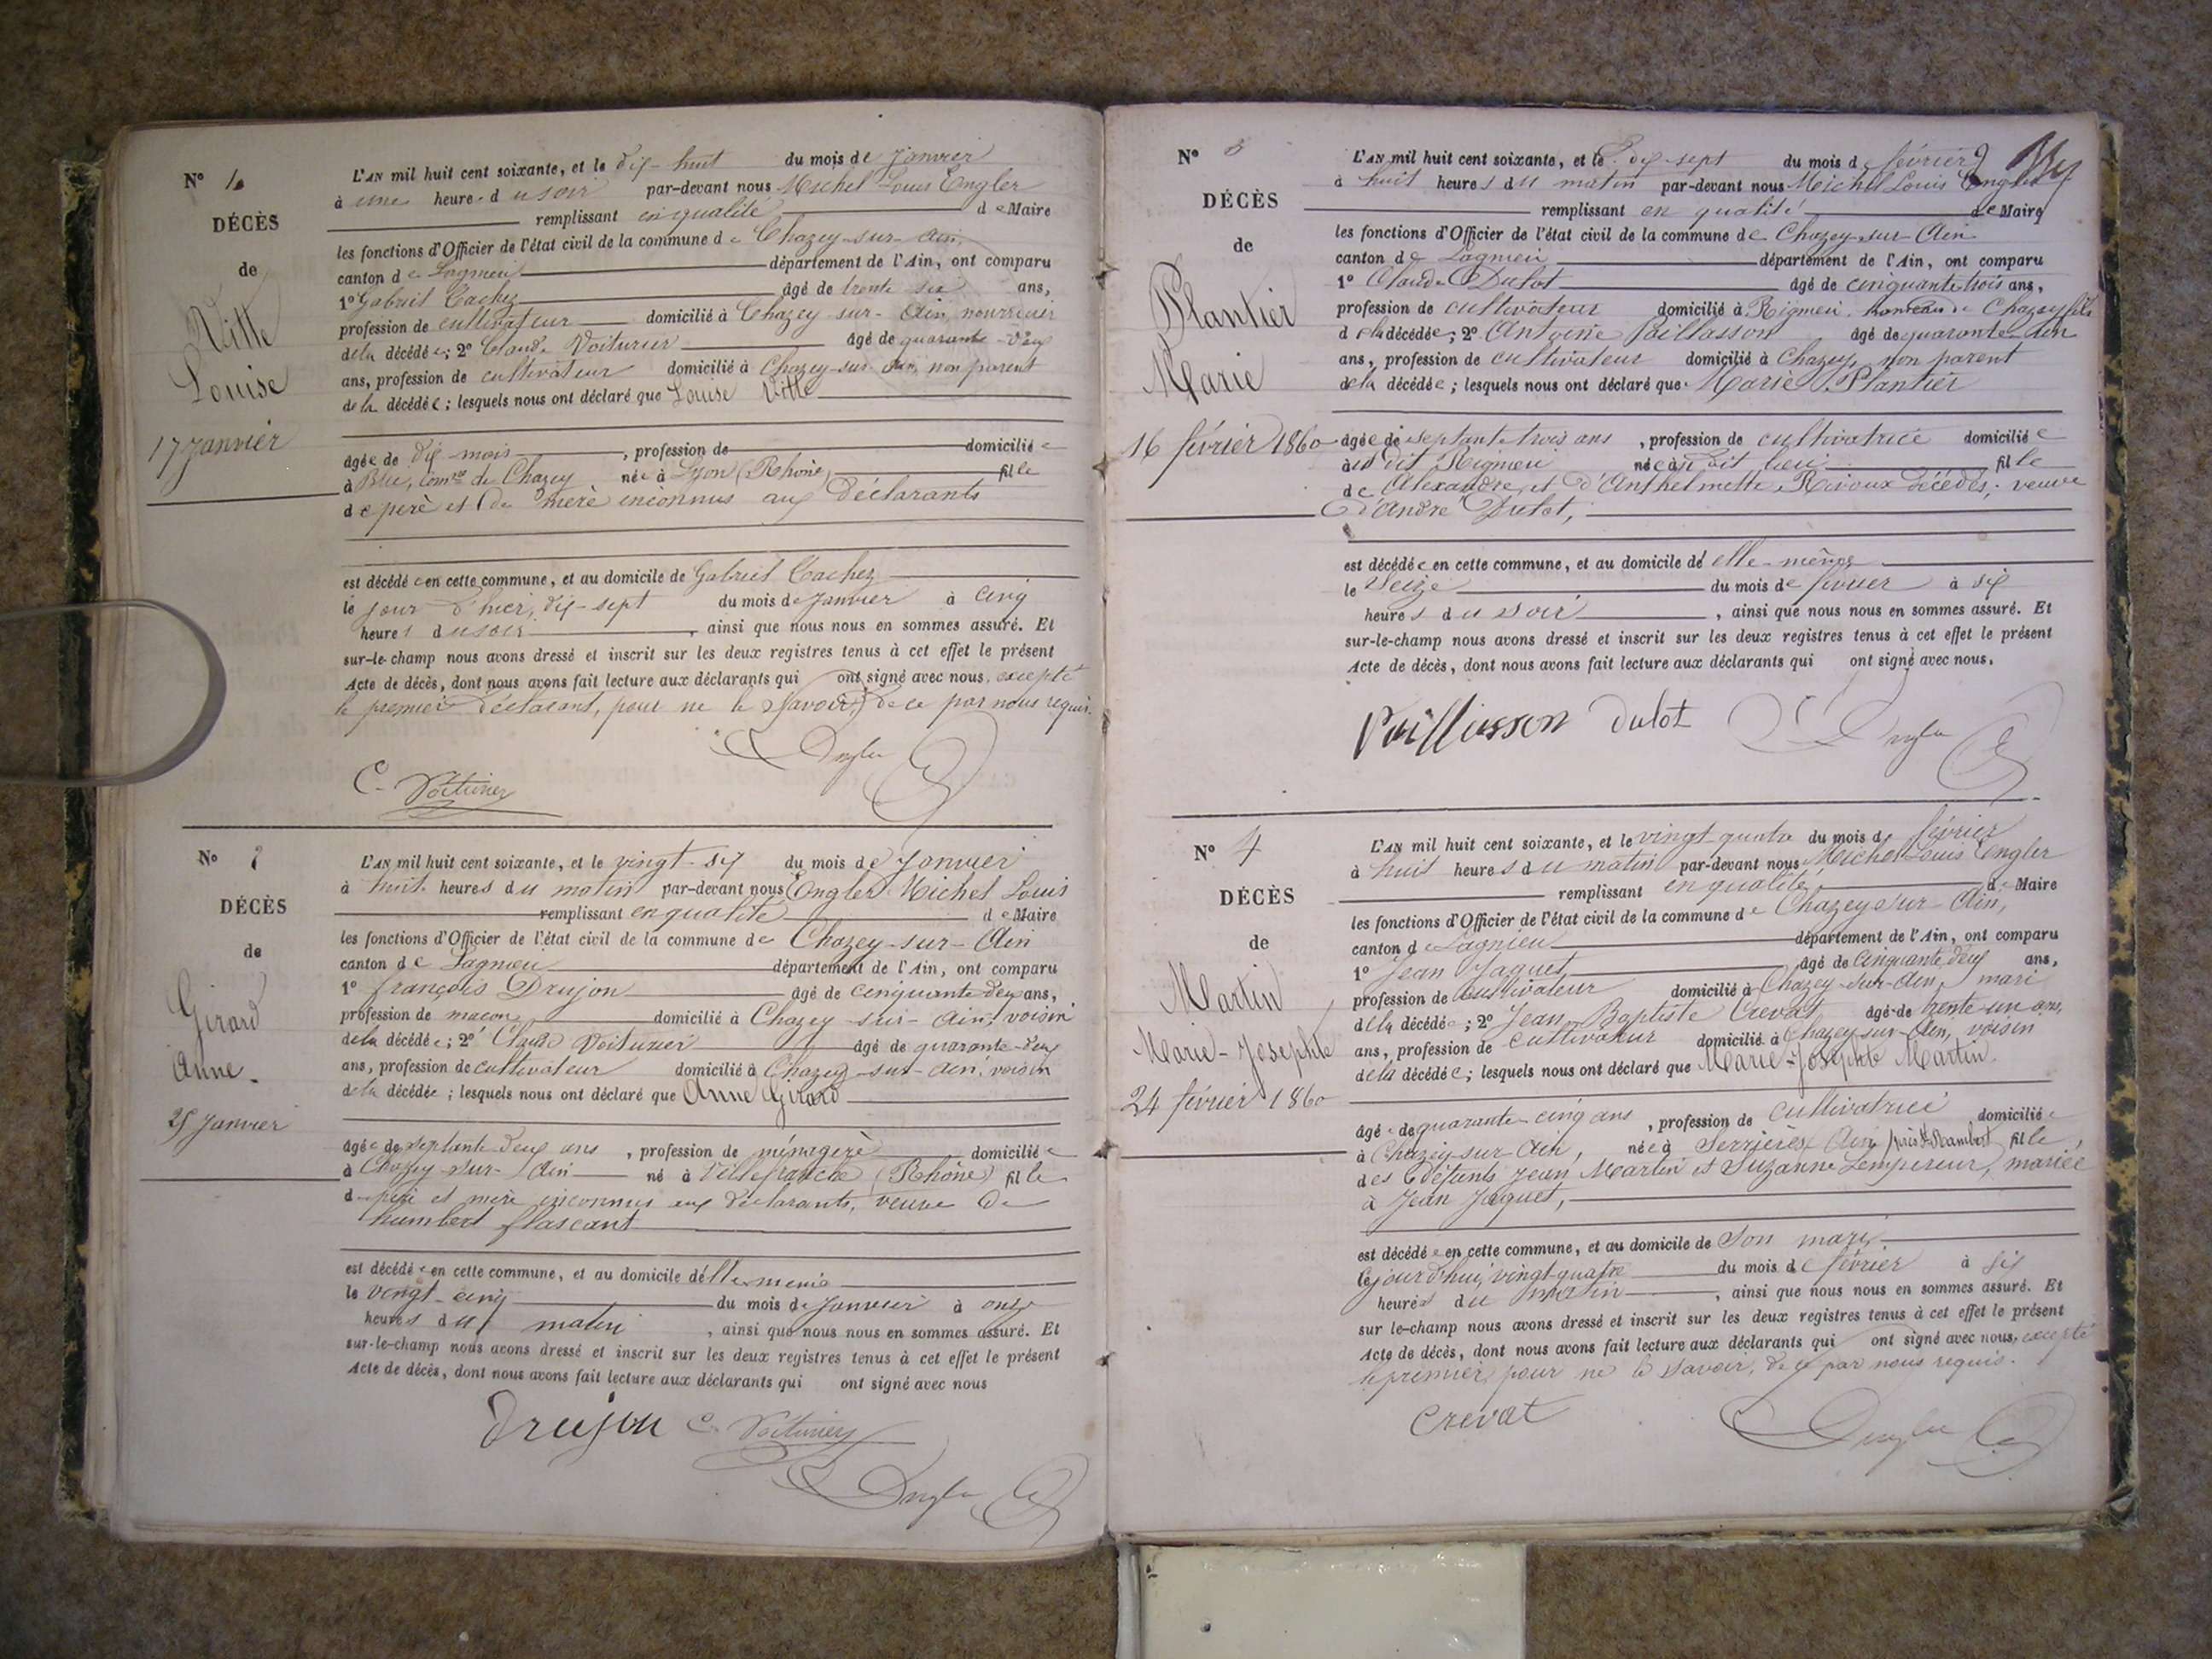 N° 1.
DÉCÈS
de
Vitte
Louise
17 Janvier
L'AN mil huit cent soixante, et le dix-huit du mois de Janvier
à une heure du soir par-devant nous Michel Louis Engler
remplissant en qualité de Maire
les fonctions d'Officier de l'état civil de la commune de Chazey-sur-Ain,
canton de Lagnieu département de l'Ain, ont comparu
1° Gabriel Cachez âgé de trente six ans,
profession de cultivateur domicilié à Chazey-sur-Ain, nourricier
de la décédée; 2° Claude Voiturier âgé de quarante-deux
ans, profession de cultivateur domicilié à Chazey-sur-Ain, non parent
de la décédée; lesquels nous ont déclaré que Louise Vitte
âgée de dix mois, profession de domiciliée
à Blie, Comne de Chazey née à Lyon (Rhône) fille
de père et de mère inconnus aux déclarants
est décédée en cette commune, et au domicile de Gabriel Cachez
le jour d'hier, dix-sept du mois de Janvier à cinq
heures du soir, ainsi que nous nous en sommes assuré. Et
sur-le-champ nous avons dressé et inscrit sur les deux registres tenus à cet effet le présent
Acte de décès, dont nous avons fait lecture aux déclarants qui ont signé avec nous, excepté
le premier déclarant, pour ne le savoir, de ce par nous requis.
Engler
C. Voiturier
N° 2
DÉCÈS
de
Girard
Anne
25 Janvier
L'AN mil huit cent soixante, et le vingt-six du mois de Janvier
à huit heures du matin par-devant nous Engler Michel Louis
remplissant en qualité de Maire
les fonctions d'Officier de l'état civil de la commune de Chazey-sur-Ain
canton de Lagnieu département de l'Ain, ont comparu
1° françois Drujon âgé de cinquante deux ans,
profession de maçon domicilié à Chazey-sur-Ain, voisin
de la décédée; 2° Claude Voiturier âgé de quarante-deux
ans, profession de cultivateur domicilié à Chazey-sur-Ain, voisin
de la décédée; lesquels nous ont déclaré que Anne Girard
âgée de septante deux ans, profession de ménagère domiciliée
à Chazey-sur-Ain né à Villefranche (Rhône) fille
de père et mère inconnus aux déclarants, veuve de
humbert flascant
est décédée en cette commune, et au domicile d'elle même
le vingt-cinq du mois de Janvier à onze
heures du matin, ainsi que nous nous en sommes assuré. Et
sur-le-champ nous avons dressé et inscrit sur les deux registres tenus à cet effet le présent
Acte de décès, dont nous avons fait lecture aux déclarants qui ont signé avec nous
Drujon C. Voiturier
Engler
N° 3
DÉCÈS
de
Plantier
Marie
16 février 1860
L'AN mil huit cent soixante, et le dix-sept du mois de février
à huit heures du matin par-devant nous Michel Louis Engler
remplissant en qualité de Maire
les fonctions d'Officier de l'état civil de la commune de Chazey-sur-Ain
canton de Lagnieu département de l'Ain, ont comparu
1° Claude Dulot âgé de cinquante trois ans,
profession de cultivateur domicilié à Rignieu, hameau de Chazey fils
de la décédée; 2° Antoine Paillasson âgé de quarante
ans, profession de cultivateur domicilié à Chazey, non parent
de la décédée; lesquels nous ont déclaré que Marie Plantier
âgée de septante trois ans, profession de cultivatrice domiciliée
au dit Rignieu née au dit lieu fille
de Alexandre et d'Anthelmette Rivoux décédés; veuve
d'André Dulot,
est décédée en cette commune, et au domicile d'elle-même
le Seize du mois de février à six
heures du soir, ainsi que nous nous en sommes assuré. Et
sur-le-champ nous avons dressé et inscrit sur les deux registres tenus à cet effet le présent
Acte de décès, dont nous avons fait lecture aux déclarants qui ont signé avec nous.
Paillasson Dulot Engler
N° 4
DÉCÈS
de
Martin
Marie-Josephte
24 février 1860
L'AN mil huit cent soixante, et le vingt quatre du mois de février
à huit heures du matin par-devant nous Michel Louis Engler
remplissant en qualité de Maire
les fonctions d'Officier de l'état civil de la commune de Chazey sur Ain,
canton de Lagnieu département de l'Ain, ont comparu
1° Jean Jaquet, âgé de cinquante deux ans,
profession de cultivateur domicilié à Chazey-sur-Ain, mari
de la décédée; 2° Jean-Baptiste Crevat âgé de trente un ans,
ans, profession de cultivateur domicilié à Chazey-sur-Ain, voisin
de la décédée; lesquels nous ont déclaré que Marie-Josephte Martin
âgée de quarante-cinq ans, profession de cultivatrice domiciliée
à Chazey-sur-Ain, née à Serrières Ain près St Rambert fille
des défunts Jean Martin et Suzanne Lempereur, mariée
à Jean Jaquet,
est décédée en cette commune, et au domicile de Son mari
le jourd'hui, vingt-quatre du mois de février à six
heures du matin, ainsi que nous nous en sommes assuré. Et
sur le-champ nous avons dressé et inscrit sur les deux registres tenus à cet effet le présent
Acte de décès, dont nous avons fait lecture aux déclarants qui ont signé avec nous, excepté
le premier, pour ne le savoir, de ce par nous requis.
Crevat Engler